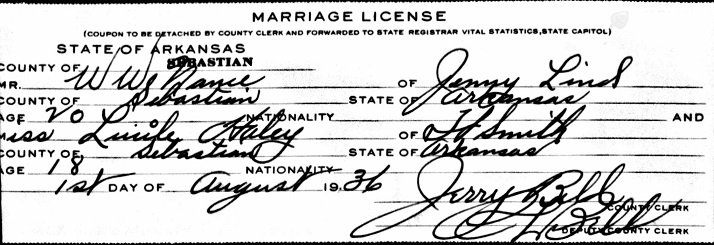 MARRIAGE LICENSE
(COUPON TO BE DETACHED BY COUNTY CLERK AND FORWARDED TO STATE REGISTRAR VITAL STATISTICS, STATE CAPITOL)
STATE OF ARKANSAS
COUNTY OF SEBASTIAN
MR. W W Nance OF Jenny Lind
COUNTY OF Sebastian STATE OF Arkansas
AGE 20 NATIONALITY AND
Miss Lucile Haley OF Ft Smith
COUNTY OF Sebastian STATE OF Arkansas
AGE 18 NATIONALITY
1st DAY OF August 1936
Jerry Bell COUNTY CLERK
Bell DEPUTY COUNTY CLERK